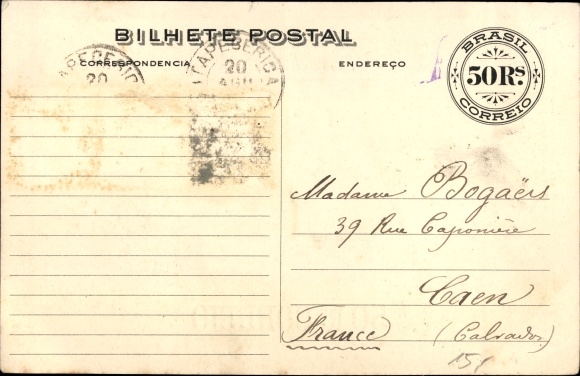 BILHETE POSTAL
CORRESPONDENCIA
ENDEREÇO
BRASIL
50 Rs.
CORREIO
ITAPECERICA
20
APECERIC
20
Madame Bogaërs
39 Rue Caponière
Caen
France (Calvados)